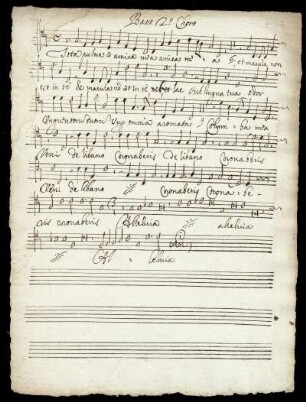 Baxo 2º Choro
Tota pulcra es amica mea amica me a et macula non
est in te et macula non est in te lae sub lingua tua odor
unguentorum tuorum super omnia aromata Colum bas mea
Veni de libano Coronaberis de libano Coronaberis
Veni de libano Coronaberis Corona be
ris coronaberis Alleluia alleluia
Al leluia